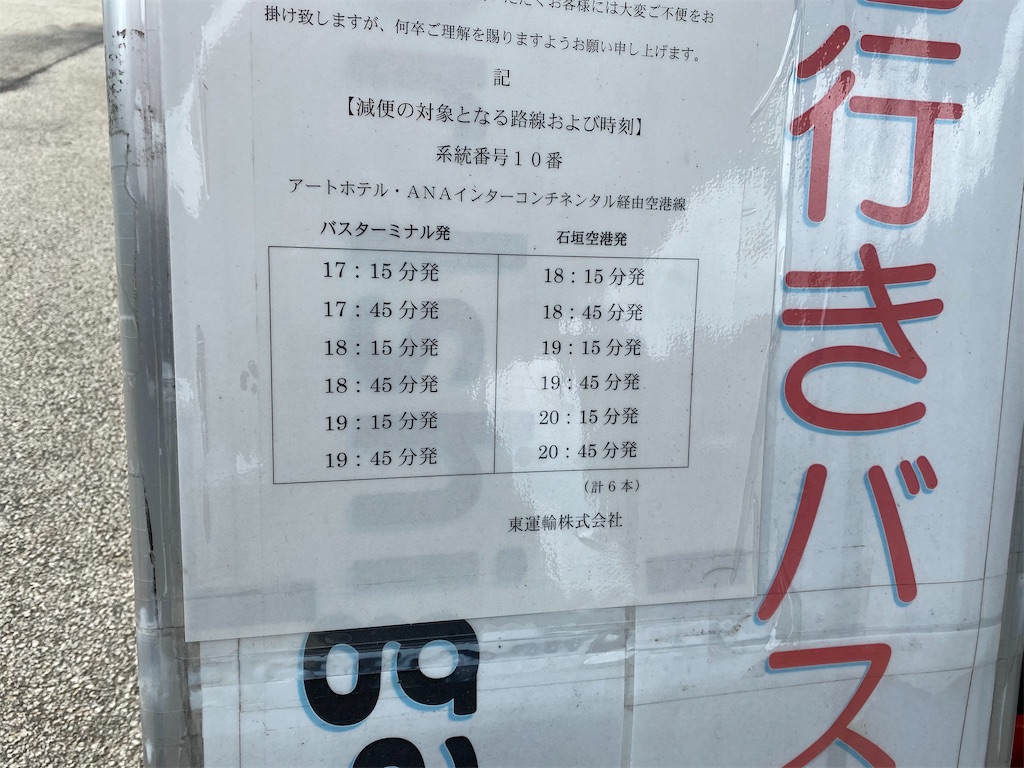 くお客様には大変ご不便をお
掛け致しますが、何卒ご理解を賜りますようお願い申し上げます。
記
【減便の対象となる路線および時刻】
系統番号１０番
アートホテル・ＡＮＡインターコンチネンタル経由空港線
バスターミナル発 石垣空港発
17：15分発 18：15分発
17：45分発 18：45分発
18：15分発 19：15分発
18：45分発 19：45分発
19：15分発 20：15分発
19：45分発 20：45分発
（計６本）
東運輸株式会社
行きバス